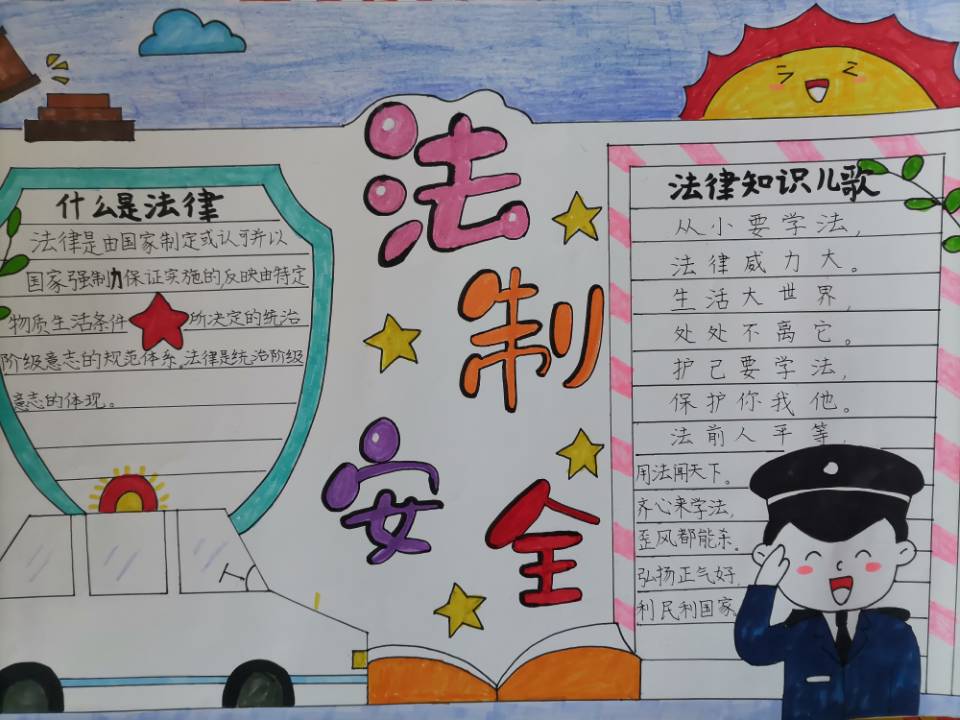 什么是法律
法律是由国家制定或认可并以
国家强制力保证实施的,反映由特定
物质生活条件所决定的统治
阶级意志的规范体系。法律是统治阶级
意志的体现。
法制安全
法律知识儿歌
从小要学法,
法律威力大。
生活大世界,
处处不离它。
护己要学法,
保护你我他。
法前人平等,
用法闻天下。
齐心来学法,
歪风都能杀。
弘扬正气好,
利民利国家。